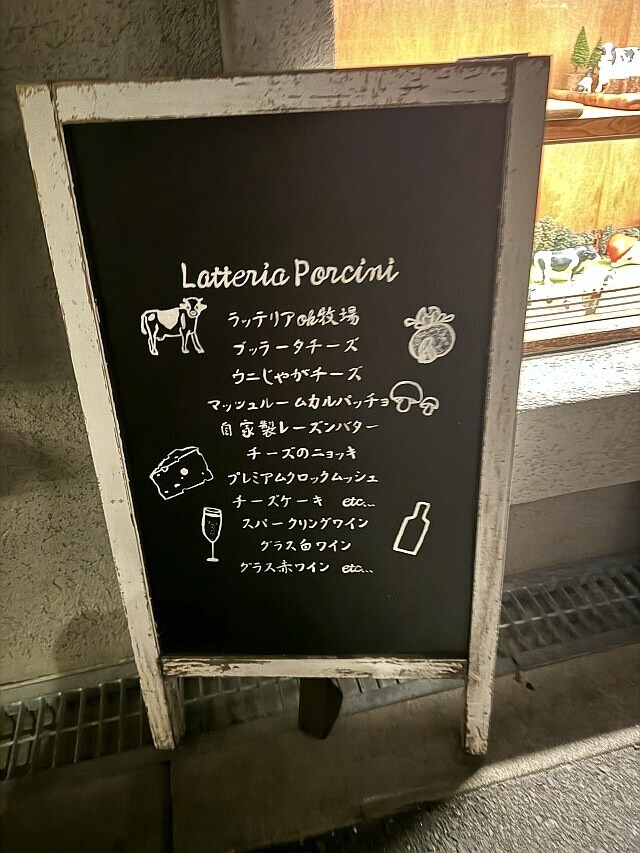 Latteria Porcini
ラッテリアoh牧場
ブッラータチーズ
ウニじゃがチーズ
マッシュルームカルパッチョ
自家製レーズンバター
チーズのニョッキ
プレミアムクロックムッシュ
チーズケーキ etc...
スパークリングワイン
グラス白ワイン
グラス赤ワイン etc...